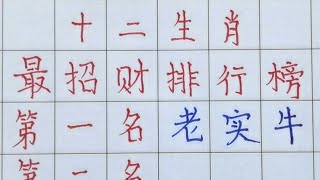 十二生肖
最招财排行榜
第一名老实牛
第二名